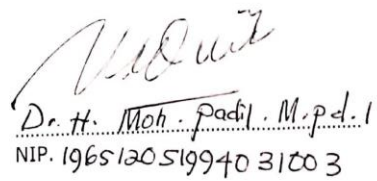 Dr. H. Moh. Padil. M.pd.I
NIP. 196512051994031003